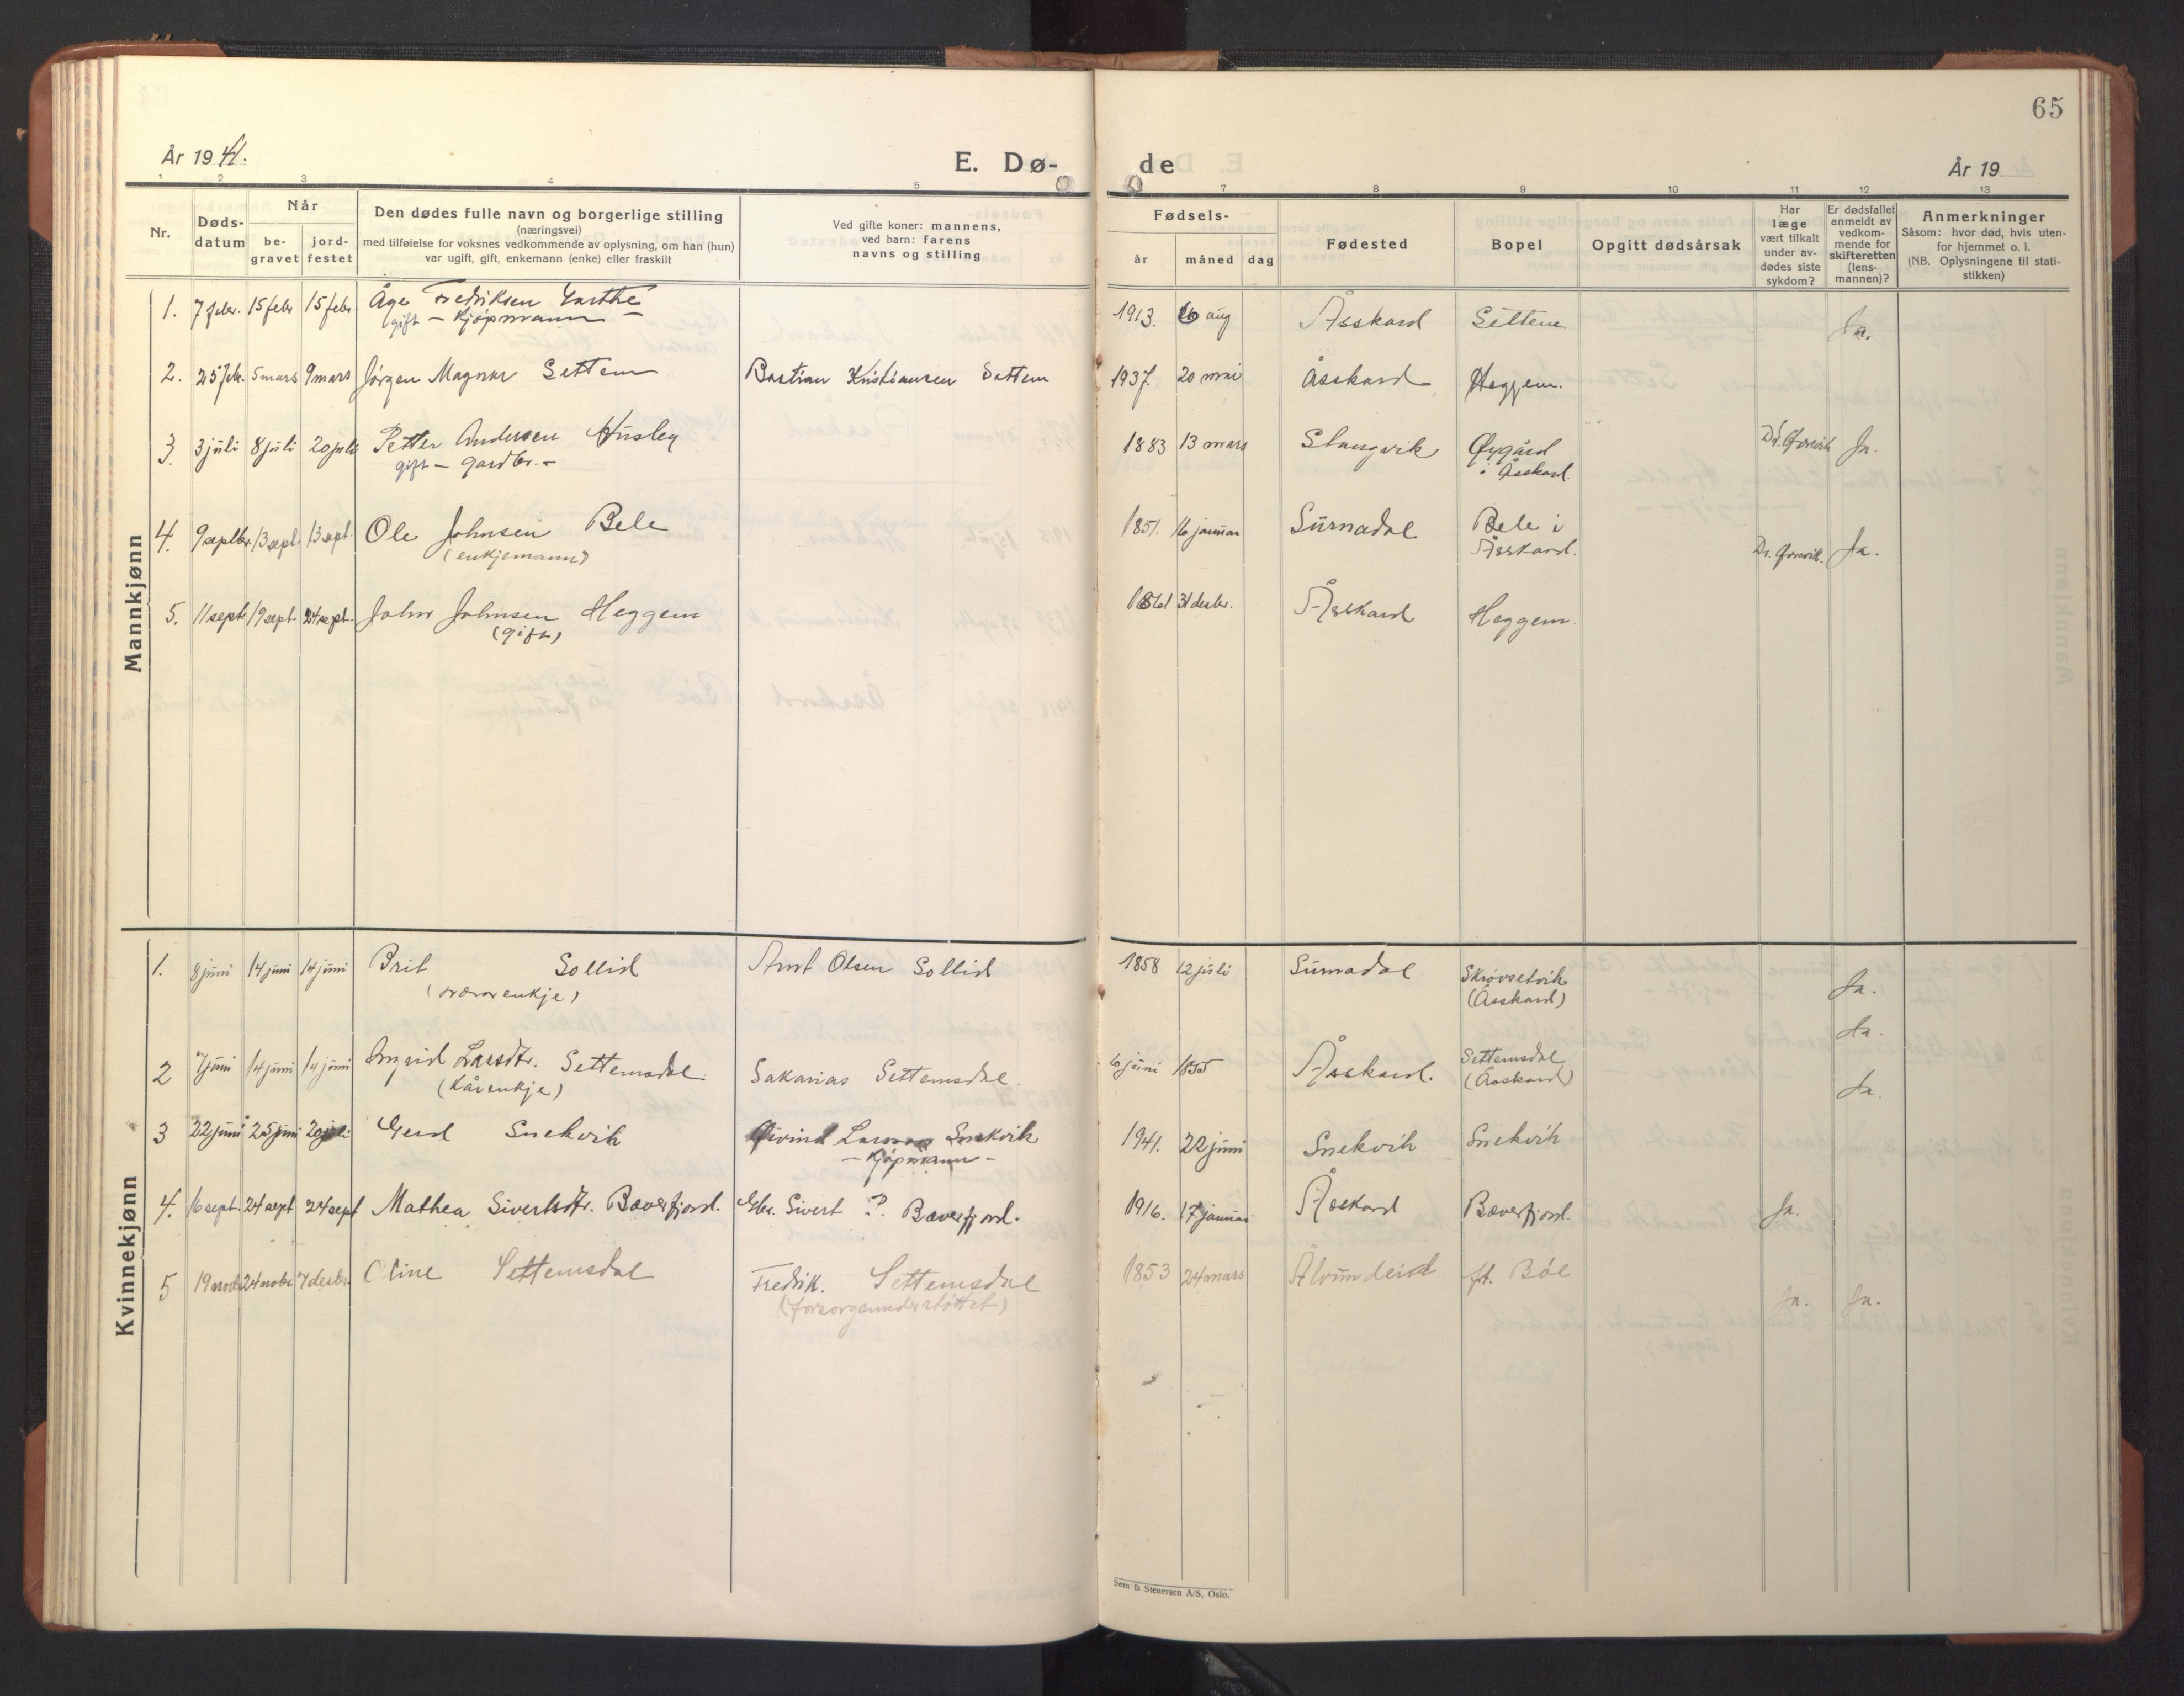 65
År 19 41.
E. Dø-
de
År 19
1 2 3 4 5 7 8 9 10 11 12 13
Nr.
Døds-
datum
Når
be-
gravet
jord-
festet
Den dødes fulle navn og borgerlige stilling
(næringsvei)
med tilføielse for voksnes vedkommende av oplysning, om han (hun)
var ugift, gift, enkemann (enke) eller fraskilt
Ved gifte koner: mannens,
ved barn: farens
navns og stilling
Fødsels-
år måned dag
Fødested
Bopel
Opgitt dødsårsak
Har
læge
vært tilkalt
under av-
dødes siste
sykdom?
Er dødsfallet
anmeldt av
vedkom-
mende for
skifteretten
(lens-
mannen)?
Anmerkninger
Såsom: hvor død, hvis uten-
for hjemmet o. l.
(NB. Oplysningene til stati-
stikken)
Mannkjønn
1. 7 febr. 15 febr 15 febr Åge Fredriksen 1913. aug Åsskard Settem Ja.
gift - Kjøpmann -
2. 25 feb. 5 mars 9 mars Jørgen Magnar Settem Bastian Kristiansen Settem 1937. 20 mai Åsskard Heggem.
3. 3 juli 8 juli 20 juli Petter Andersen Husby 1883 13 mars Stangvik Øygård Ja.
gift - gardbr. - i Åsskard.
4. 9 septbr. 13 sept. 13 sept. Ole Johnsen Bele 1851. 16 januar Surnadal Bele i Ja.
(enkjemann) Åsskard.
5. 11 sept. 19 sept. 24 sept. John Johnsen Heggem 31 desbr. Åsskard Heggem.
(gift)
Kvinnekjønn
1. 8 juni 14 juni 14 juni Brit Sollid Arnt Olsen Sollid 1858 12 juli Surnadal Skrøvsetvik Ja.
(Åsskard)
Ja.
2 7 juni 14 juni 14 juni Ingrid Larsdtr. Settemsdal Sakarias Settemsdal. 6 juni 1855 Åsskard. Settemsdal
(Kårenkje) (Åsskard)
Ja.
3 22 juni 25 juni 20 juli Gerd Snekvik Eivind Larsen Snekvik 1941. 22 juni Snekvik Snekvik
- Kjøpmann -
4. 16 sept. 24 sept 24 sept Mathea Sivertsdtr. Bæverfjord. Gbr. Sivert ?. Bæverfjord. 1916. 17 januar Åsskard Bæverfjord. Ja.
5 19 novb 24 novbr. 7 desbr. Oline Settemsdal Fredrik. Settemsdal 1853 24 mars Ålvundeid pt. Bøe Ja. Ja.
(forsorgsunderstøttet)
Sem & Stenersen A/S, Oslo.